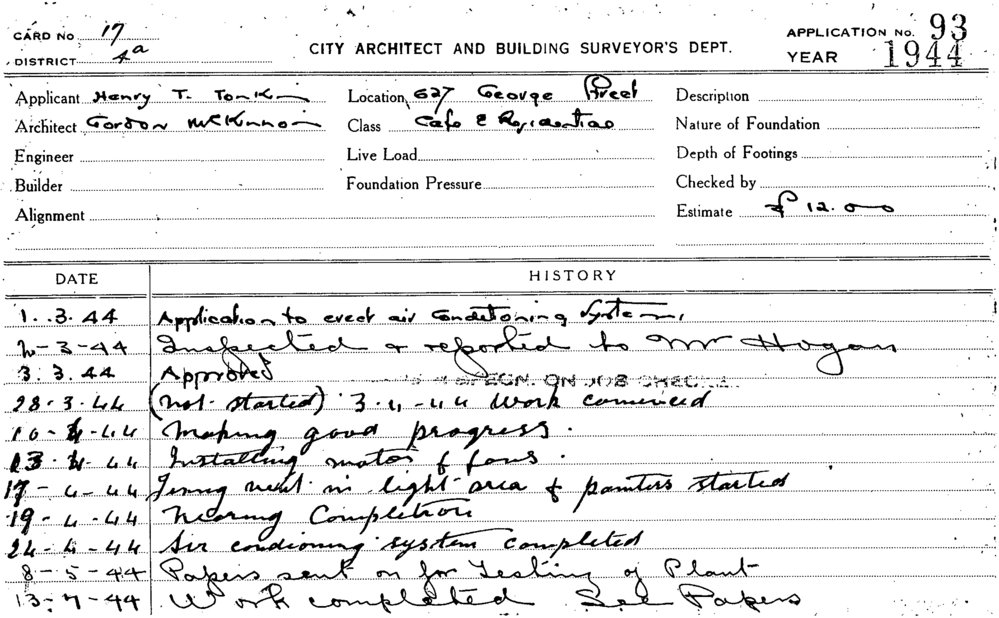 CARD NO. 17
DISTRICT 4a
CITY ARCHITECT AND BUILDING SURVEYOR'S DEPT.
APPLICATION No. 93
YEAR 1944
Applicant Henry T. Tonkin Location 627 George Street Description
Architect Gordon McKinnon Class Cafe & Residential Nature of Foundation
Engineer Live Load Depth of Footings
Builder Foundation Pressure Checked by
Alignment Estimate £ 12.00
DATE HISTORY
1.3.44 Application to erect air conditioning system.
2-3-44 Inspected & reported to Mr Hogan
3.3.44 Approved SPECN. ON JOB CHECKED
28-3-44 (Not started) 3-4-44 Work commenced
10-4-44 Making good progress.
13-4-44 Installing motor & fans.
17-4-44 vent in light area & painters started
19-4-44 Nearing Completion
24-4-44 Air condioning system completed
8-5-44 Papers sent on for Testing of Plant
13-7-44 Work completed See Papers